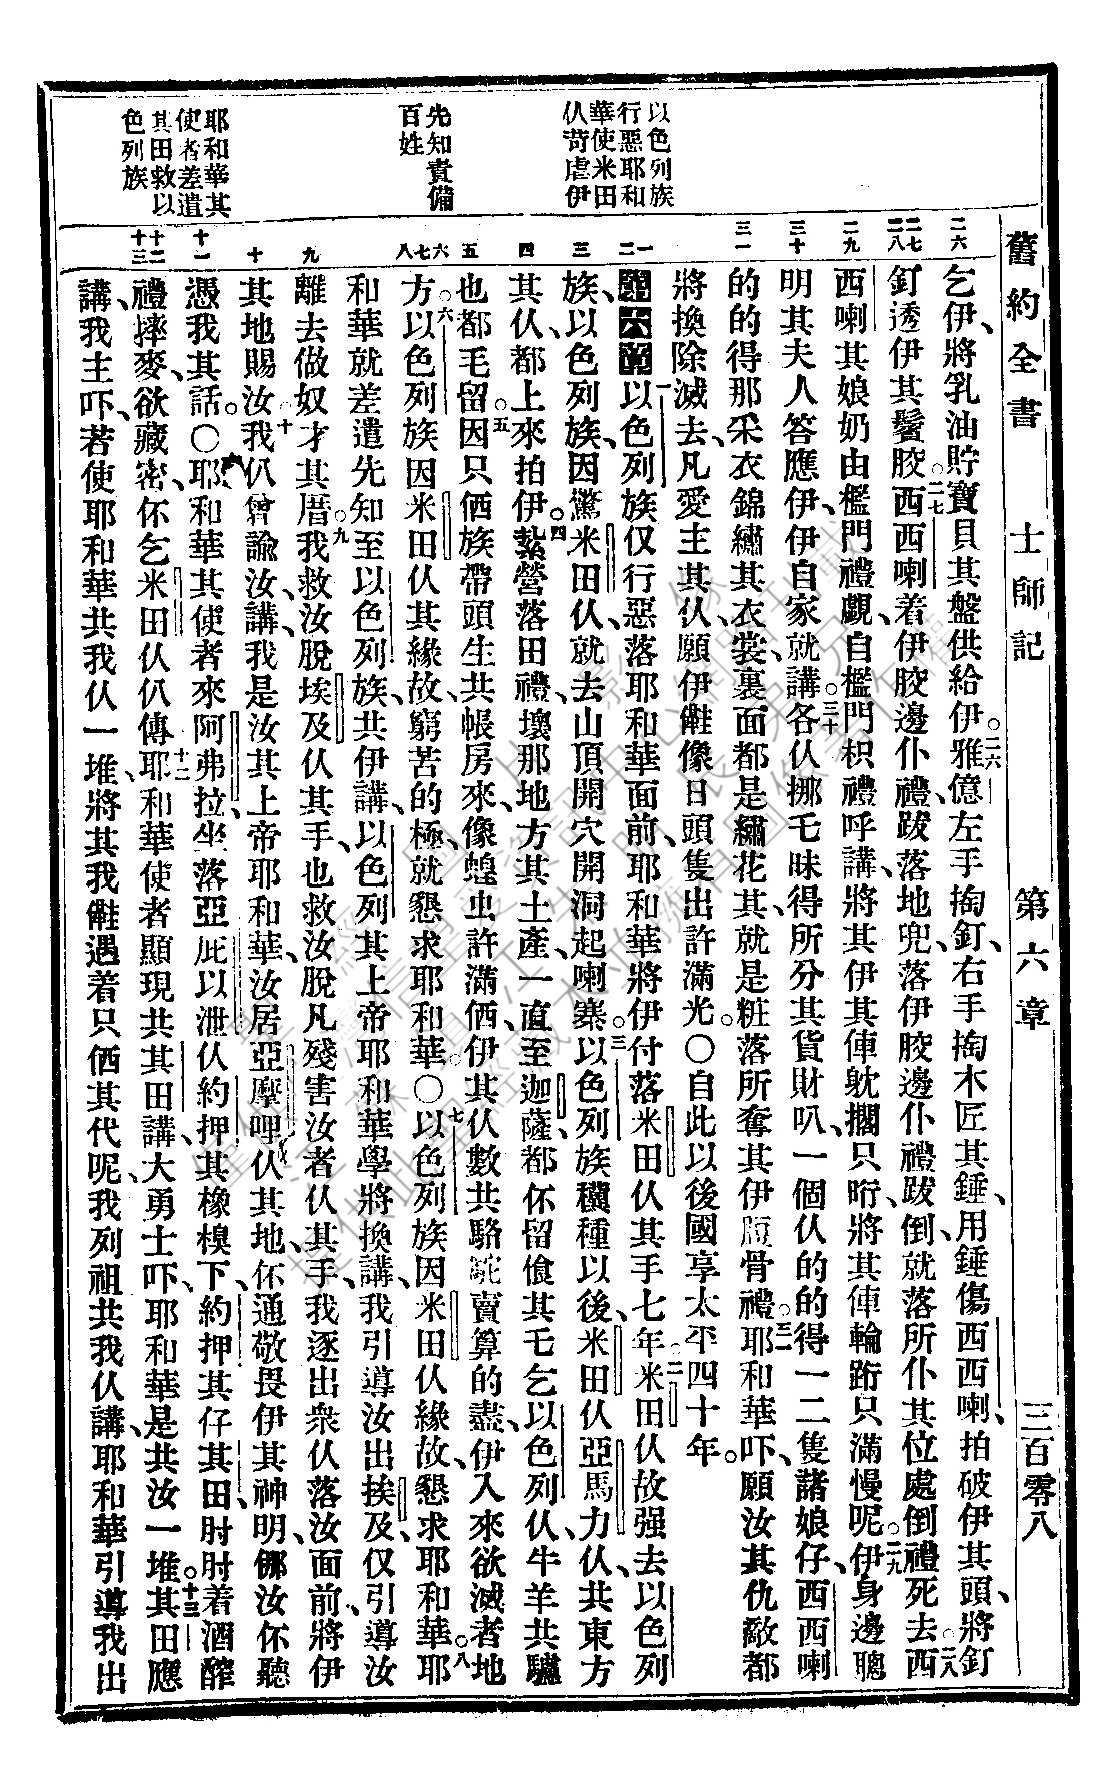 舊約全書　士師記　第六章　三百零八
以色列族
行惡耶和
華使米田
仈苛虐伊
先知責備
百姓
耶和華其
使者差遣
其田救以
色列族
二六
二七
二八
二九
三十
三一
一
二
三
四
五
六
七
八
九
十
十一
十二
十三
乞伊、將乳油貯寶貝其盤供給伊。二六雅億左手掏釘、右手掏木匠其錘、用錘傷西西喇、拍破伊其頭、將釘
釘透伊其鬢胶。二七西西喇着伊胶邊仆禮、跋落地兜、落伊胶邊仆禮跋倒、就落所仆其位處倒禮死去。二八西
西喇其娘奶由檻門禮覷、自檻門枳禮呼講、將其伊其俥躭擱只晌、將其俥輪跕只滿慢呢。二九伊身邊聰
明其夫人答應伊、伊自家就講、三十各仈挪乇昧得所分其貨財叭、一個仈的的得一二隻諸娘仔、西西喇
的的得那釆衣錦繡其衣裳、裏面都是繡花其、就是粧落所奪其伊脰骨禮。三一耶和華吓、願汝其仇敵都
將換除滅去、凡愛主其仈、願伊𠆧像日頭隻出許滿光。○自此以後國享太平四十年。
第六章 以色列族仅行惡落耶和華面前、耶和華將伊付落米田仈其手七年。二米田仈故强去以色列
族、以色列族因驚米田仈、就去山頂開穴開洞起喇寨。三以色列族穬種以後、米田仈亞馬力仈、共東方
其仈、都上來拍伊。四紮營落田禮、壞那地方其土產、一直至迦薩、都伓留飡其乇乞以色列仈、牛羊共驢
也都毛留。五因只仈族帶頭生共帳房來、像蝗虫許滿価、伊其仈數共駱駝賣算的盡、伊入來欲滅者地
方。六以色列族因米田仈其緣故、窮苦的極、就懇求耶和華。○七以色列族因米田仈緣故、懇求耶和華。八耶
和華就差遣先知至以色列族、共伊講、以色列其上帝耶和華學將換講、我引導汝出挨及、仅引導汝
離去做奴才其厝。九我救汝脫埃及仈其手、也救汝脫凡殘害汝者仈其手、我逐出衆仈落汝面前、將伊
其地賜汝。十我仈曾諭汝、講我是汝其上帝耶和華、汝居亞摩哩仈其地、伓通敬畏伊其神明、㑚汝伓聽
憑我其話。○耶和華其使者來阿弗拉、坐落亞庇以泄仈約押其橡橂下、約押其仔其田肘肘着酒醡
禮摔麥、欲藏密伓乞米田仈仈傳。十二耶和華使者顯現共其田講、大勇士吓、耶和華是共汝一堆。十三其田應
講、我主吓、若使耶和華共我仈一堆、將其我𠆧遇着只価其代呢、我列祖共我仈講、耶和華引導我出